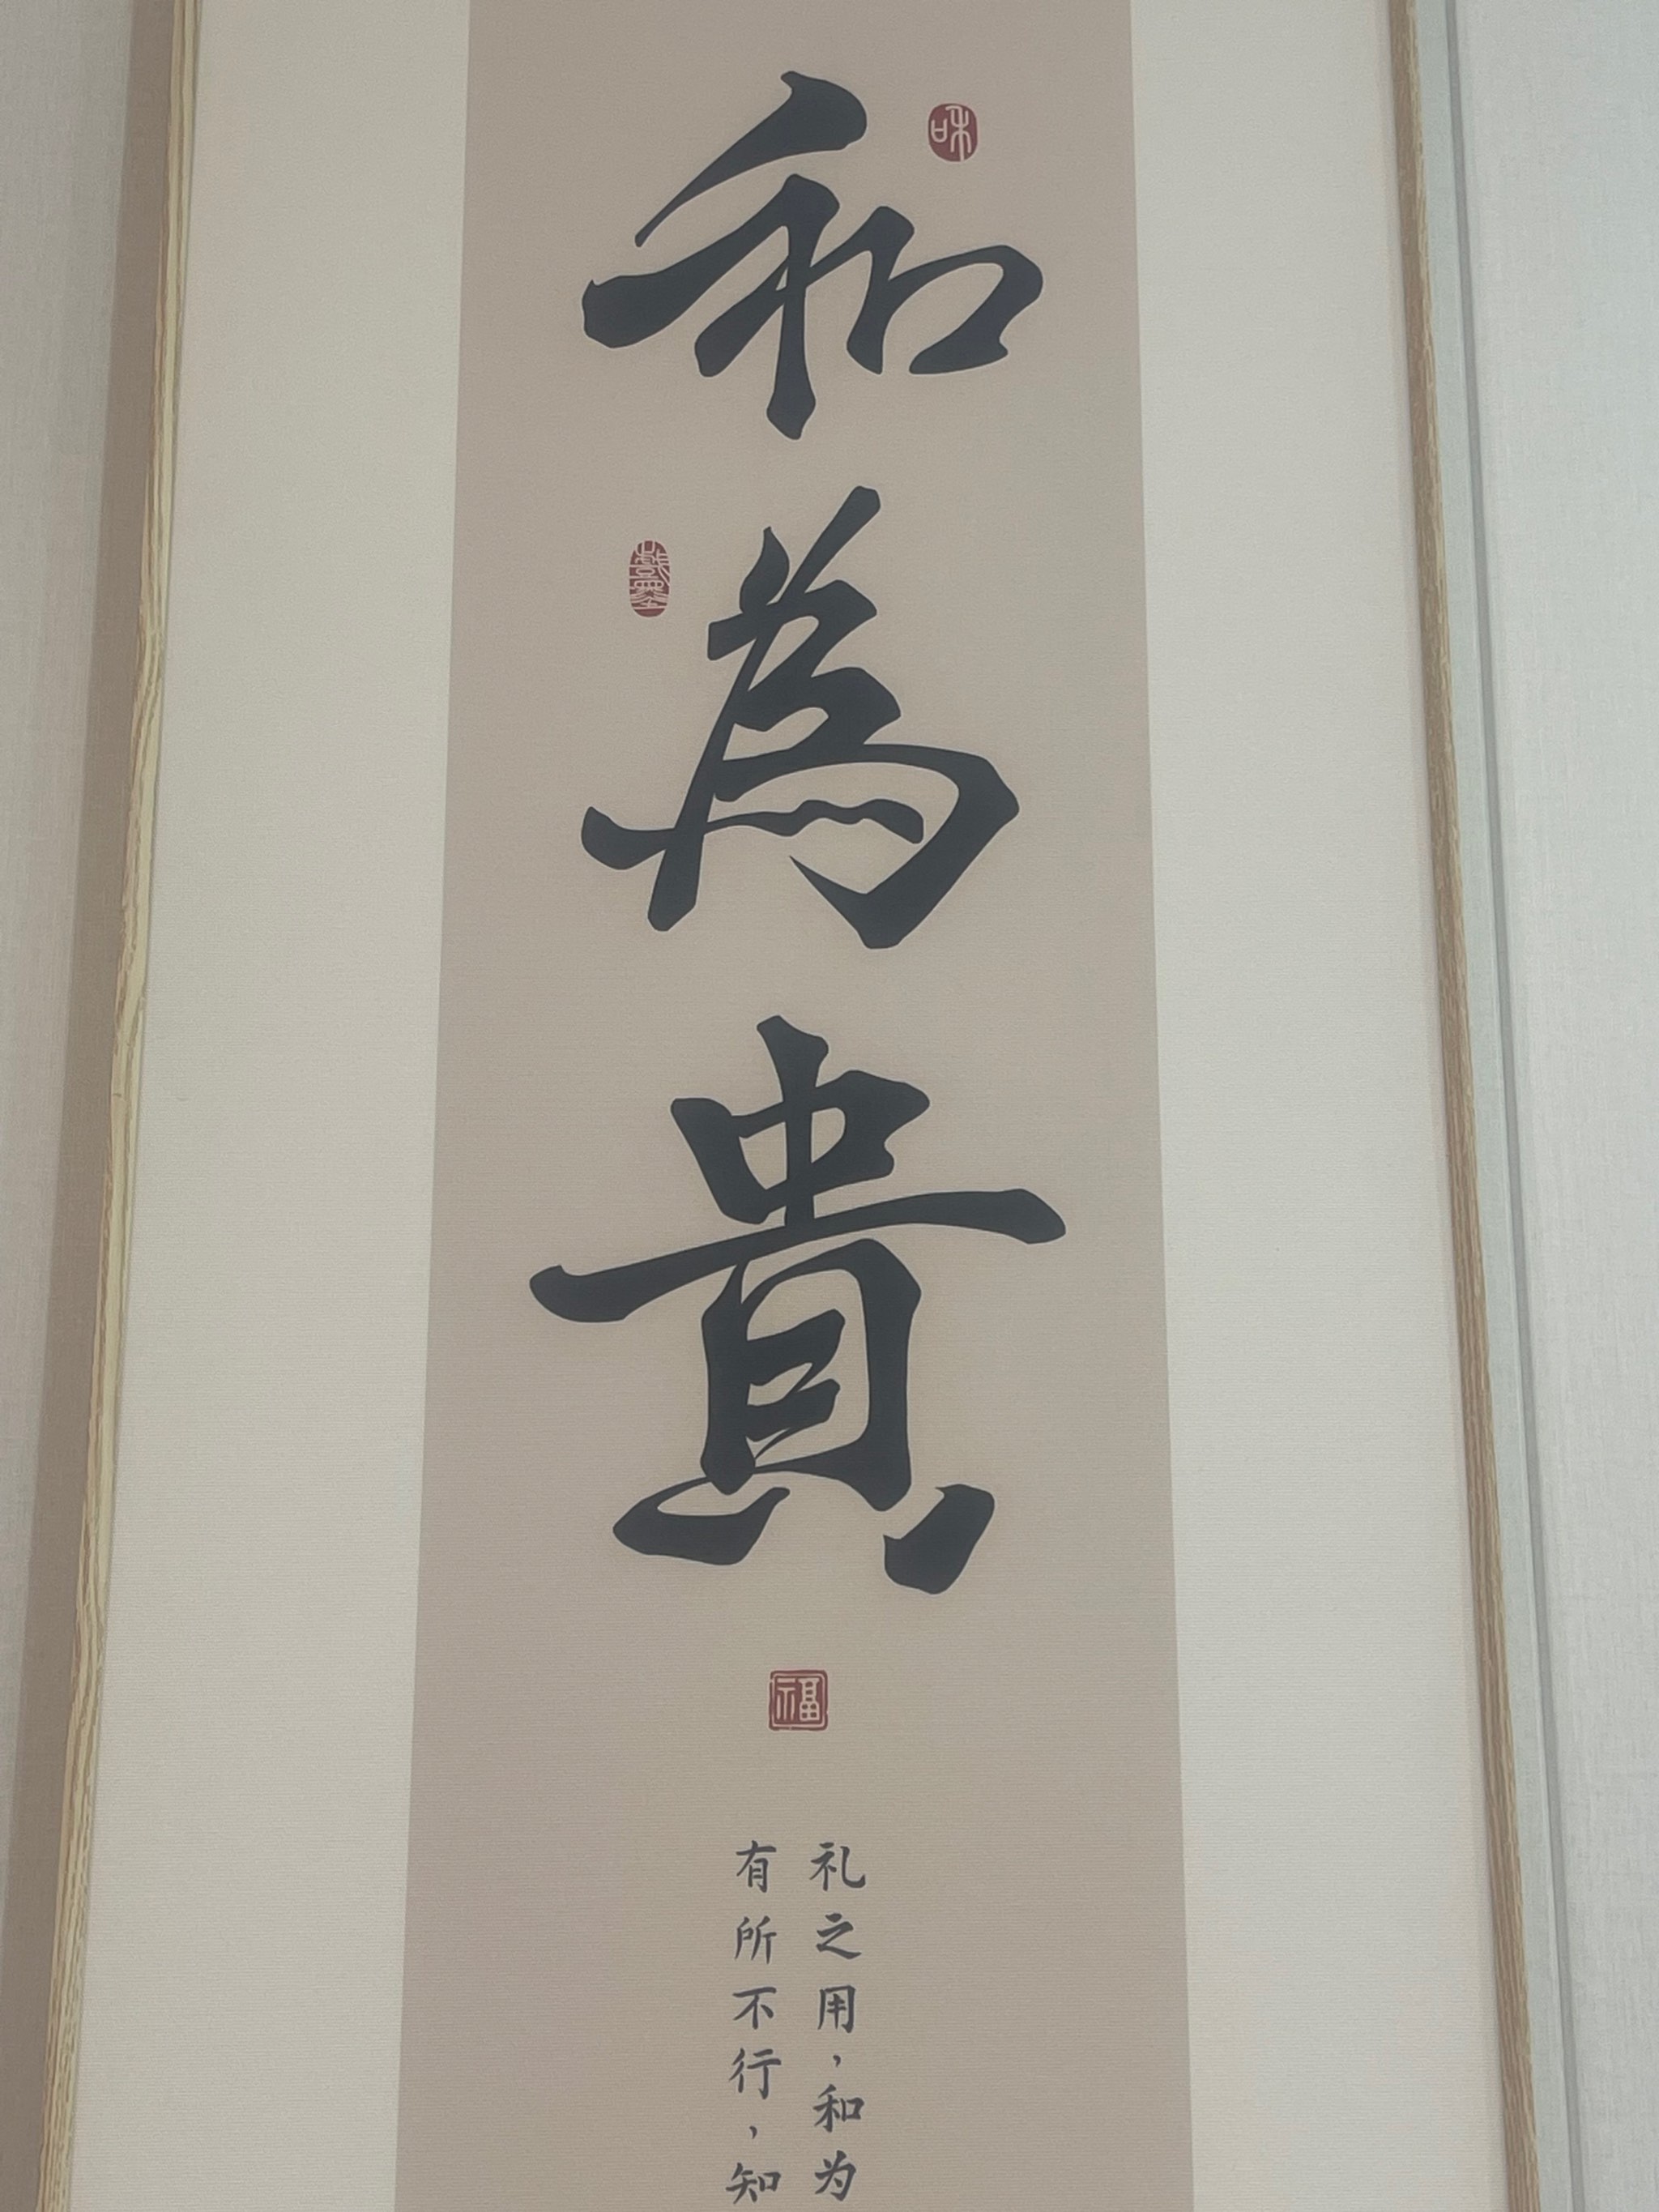 和為貴
和
藝墨
福
礼之用，和为
有所不行，知